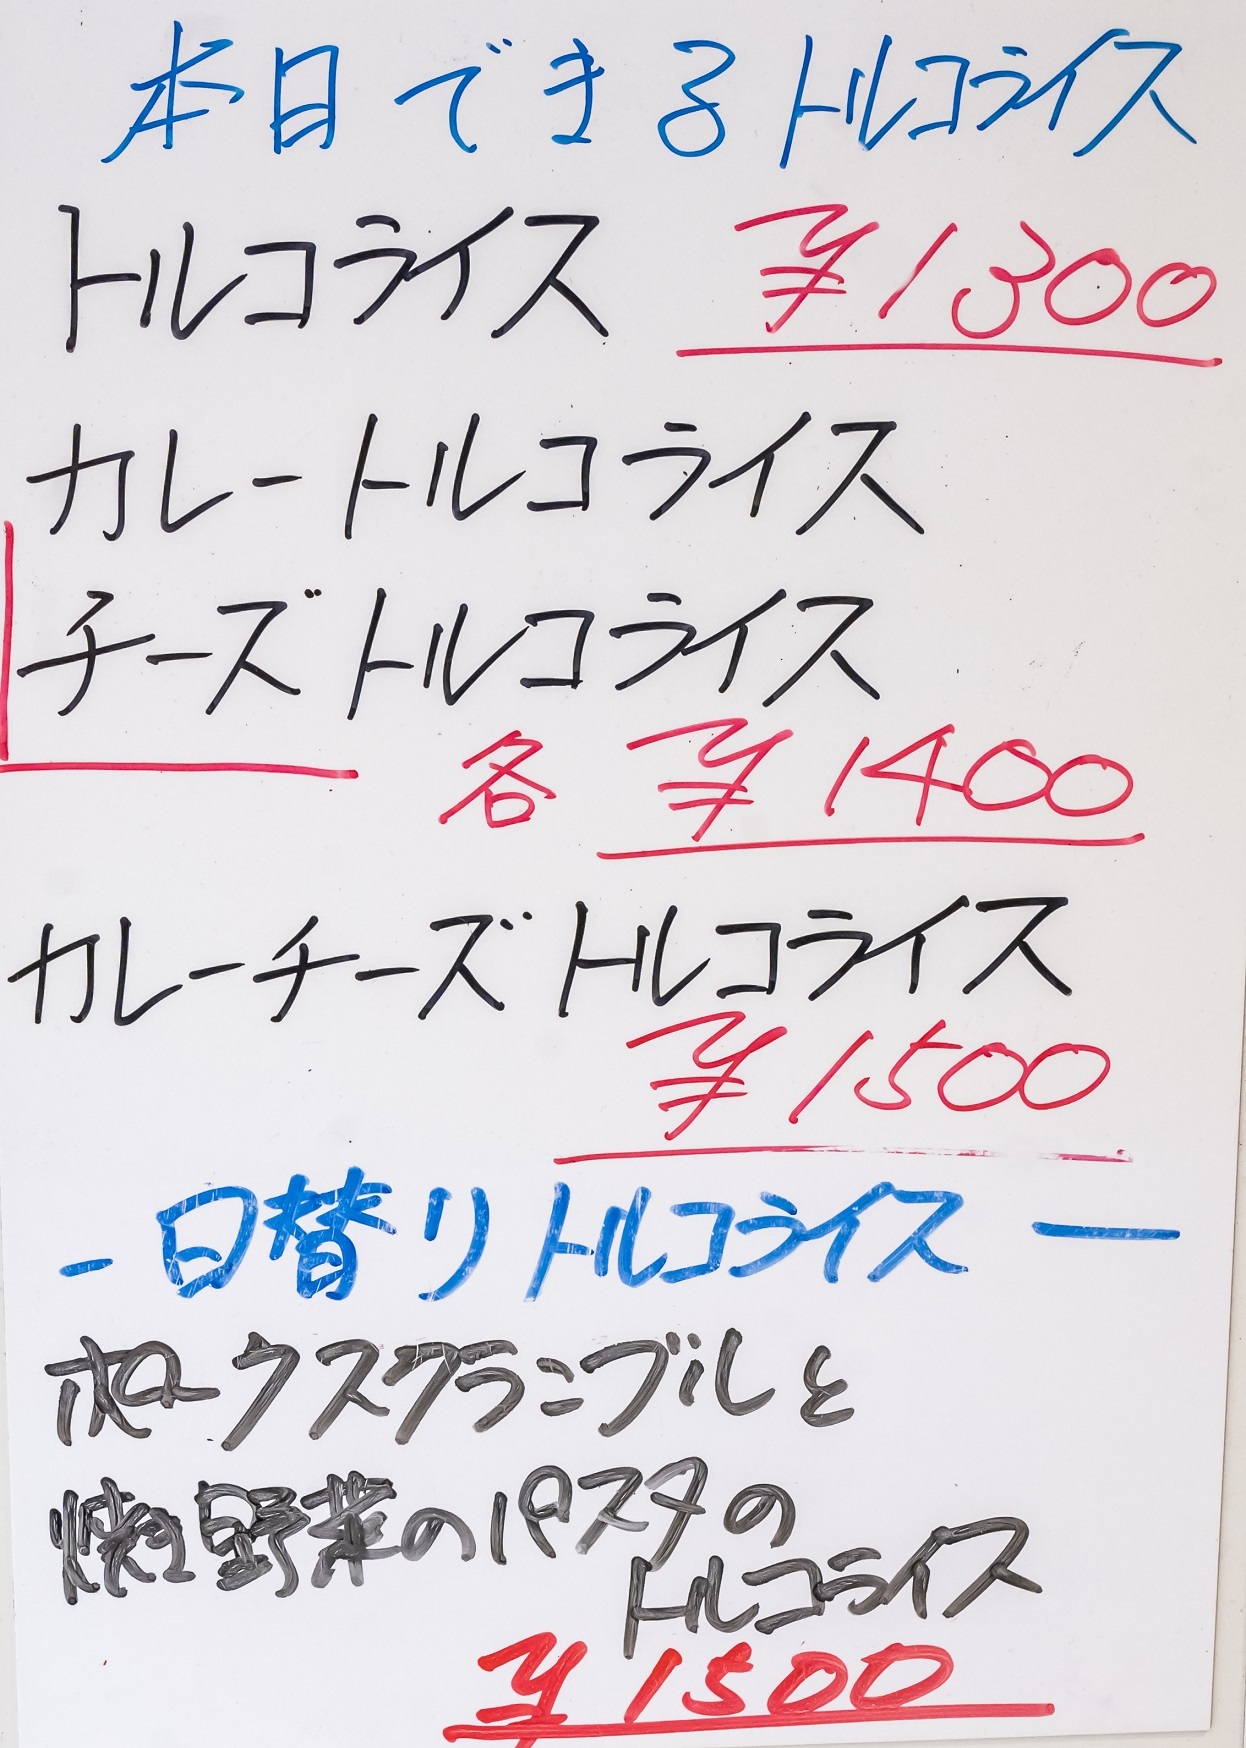 本日できるトルコライス
トルコライス ¥1300
カレートルコライス
チーズトルコライス
各 ¥1400
カレーチーズトルコライス
¥1500
-日替りトルコライス-
ポークスクランブルと
焼野菜のパスタの
トルコライス
¥1500